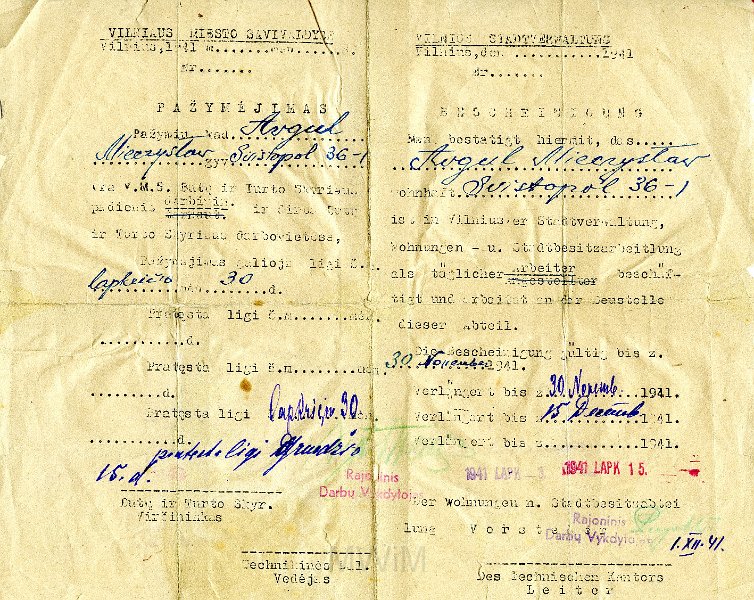 VILNIAUS MIESTO SAVIVALDYBĖ
Vilnius, 1941 m........mėn.......d.
Nr.......
PAŽYMĖJIMAS
Pažymiu kad Avgul
Mieczysław gyv. Svistopol 36-1
yra V.M.S. Butų ir Turto Skyriaus
padienis darbinin.
ir Turto Skyriaus darbovietėse,
Pažymėjimas galioja ligi š.m.
Lapkričio mėn. 30 d.
Pratęsta ligi š.m.......mėn.
...........d.
Pratęsta ligi š.m........mėn.
...........d.
Pratęsta ligi Lapkričio 30
...........d.
pratęsta ligi Gruodžio
15. d.
Rajoninis
Darbų Vykdytojas
Butų ir Turto Skyr.
Viršininkas
Technikinės
Vedėjas
VILNIUS STADTVERWALTUNG
Vilnius, den ............1941
Nr.......
BESCHEINIGUNG
Man bestätigt hiermit, das.....
Avgul Mieczysław
wohnhaft Svistopol 36-1
ist in Vilniuser Stadtverwaltung,
Wohnungen - u. Stadtbesitzarbeitlung
als täglicher Arbeiter beschäf-
angestellter
tigt und arbeitet an der Baustelle
dieser Abteil.
Die Bescheinigung gültig bis z.
30 November 1941.
Verlängert bis z. 30 Novemb. 1941.
Verlängert bis z. 15 Dezemb 1941.
Verlängert bis z...........1941.
1941 LAPK 3
1941 LAPK 15.
Der Wohnungen n. Stadtbesitzabtei
lung Vorsteher
Rajoninis
Darbų Vykdytojas
1.XII.41.
Des Technischen Kantors
Leiter